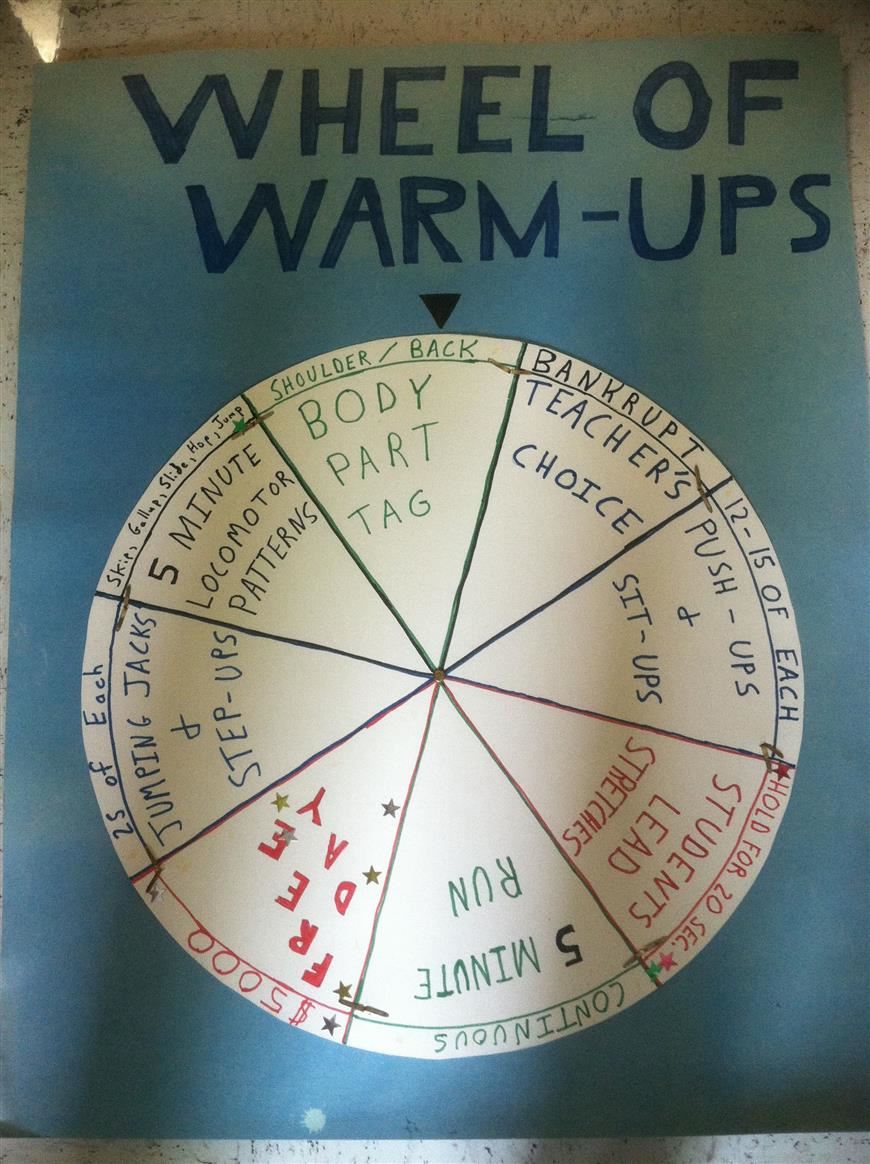 WHEEL OF
WARM-UPS
SHOULDER / BACK
BODY
PART
TAG
BANKRUPT
TEACHER'S
CHOICE
12-15 OF EACH
PUSH-UPS
+
SIT-UPS
HOLD FOR 20 SEC.
STUDENTS
LEAD
STRETCHES
CONTINUOUS
5 MINUTE
RUN
$5000
FREE
DAY
25 of Each
JUMPING JACKS
+
STEP-UPS
Skip, Gallop, Slide, Hop, Jump
5 MINUTE
LOCOMOTOR
PATTERNS